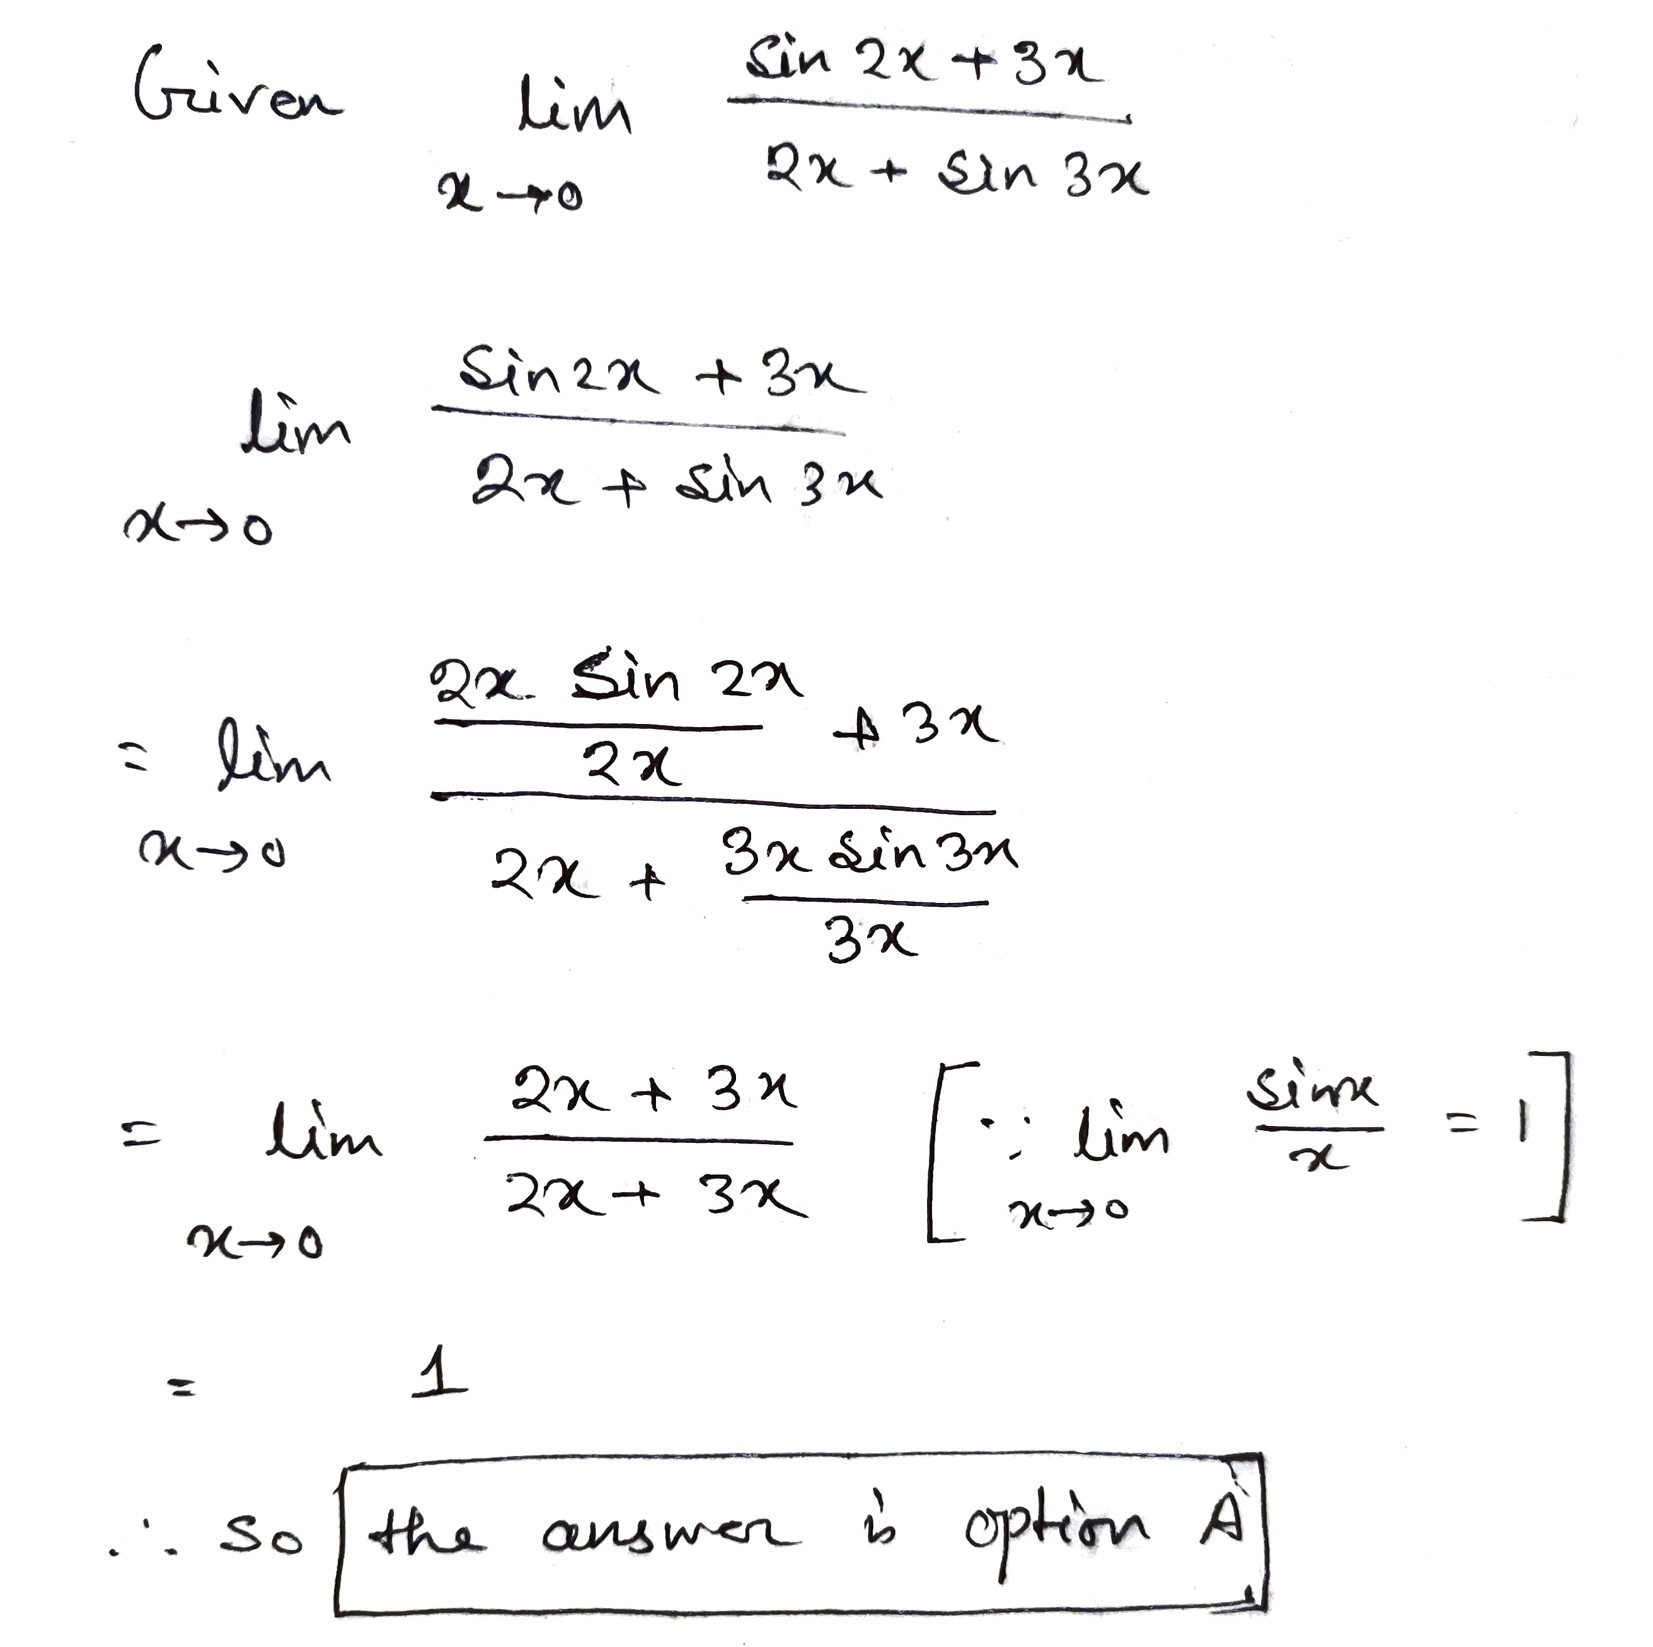 Given lim x→0 (sin 2x + 3x)/(2x + sin 3x)
lim x→0 (Sin2x + 3x)/(2x + sin 3x)
= lim x→0 ((2x Sin 2x)/(2x) + 3x)/(2x + (3x sin 3x)/(3x))
= lim x→0 (2x + 3x)/(2x + 3x) [∵ lim x→0 (sinx)/(x) = 1]
= 1
∴ So the answer is option A